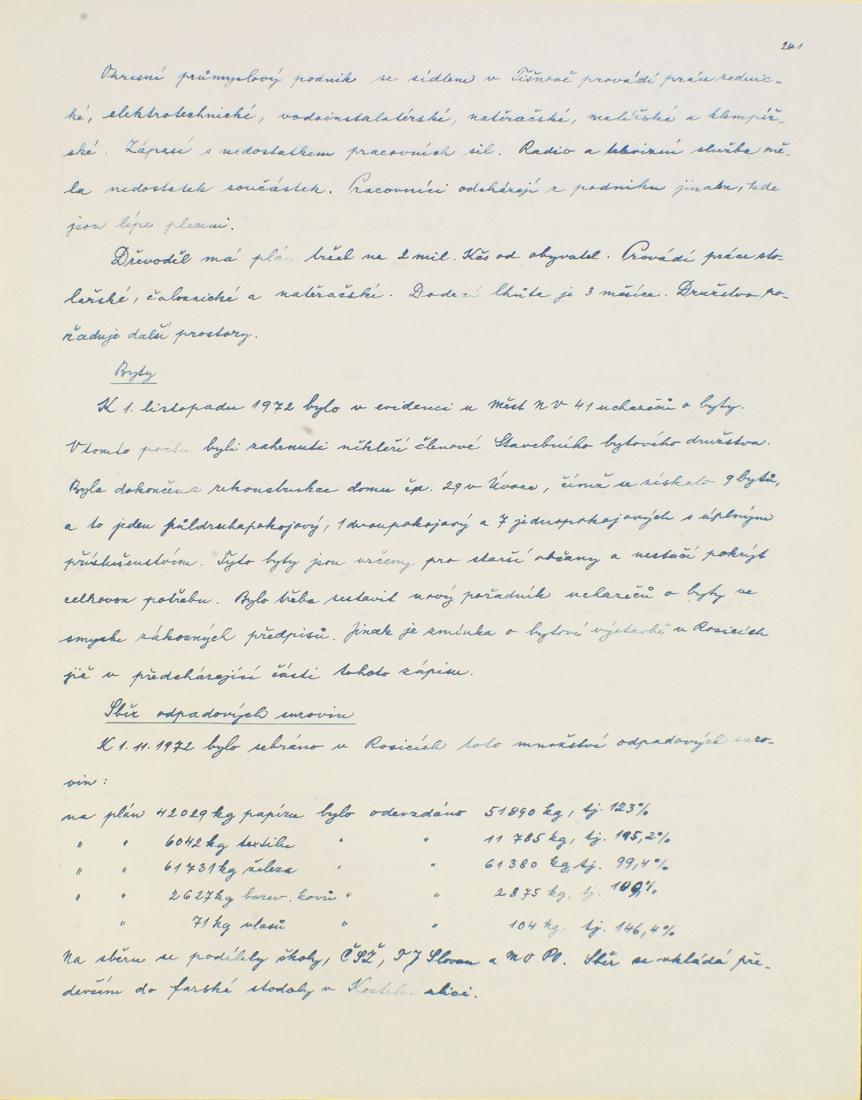 241
Okresní průmyslový podnik se sídlem v Tišnově provádí práce zednic-
ké, elektrotechnické, vodoinstalatérské, natěračské, malířské a klempíř-
ské. Zápasí s nedostatkem pracovních sil. Radio a televizní služba mě-
la nedostatek součástek. Pracovníci odcházejí z podniku jinam, kde
jsou lépe placeni.
Dřevoděl má plán tržeb na 2 mil. Kčs od obyvatel. Provádí práce sto-
lařské, čalounické a natěračské. Dodací lhůta je 3 měsíce. Družstvo po-
žaduje další prostory.
Byty
K 1. listopadu 1972 bylo v evidenci u Měst NV 41 uchazečů o byty.
V tomto počtu byli zahrnuti někteří členové Stavebního bytového družstva.
Byla dokončena rekonstrukce domu čp. 29 v Úvoze, čímž se získalo 9 bytů,
a to jeden půldruhapokojový, 1 dvoupokojový a 7 jednopokojových s úplným
příslušenstvím. Tyto byty jsou určeny pro starší občany a nestačí pokrýt
celkovou potřebu. Bylo třeba sestavit nový pořadník uchazečů o byty ve
smyslu zákonných předpisů. Jinak je zmínka o bytové výstavbě v Rosicích
již v předcházející části tohoto zápisu.
Sběr odpadových surovin
K 1. 11. 1972 bylo sebráno v Rosicích toto množství odpadových suro-
vin:
na plán 42029 kg papíru bylo odevzdáno 51890 kg, tj. 123%
" " 6042 kg textilu " " 11 785 kg, tj. 195,2%
" " 61731 kg železa " " 61380 kg, tj. 99,4%
" " 2627 kg barev. kovů " " 2875 kg, tj. 109,%
" 71 kg vlasů " " 104 kg, tj. 146,4%
Na sběru se podílely školy, ČSŽ, TJ Slovan a MO PO. Sběr se ukládá pře-
devším do farské stodoly v Kostelní ulici.